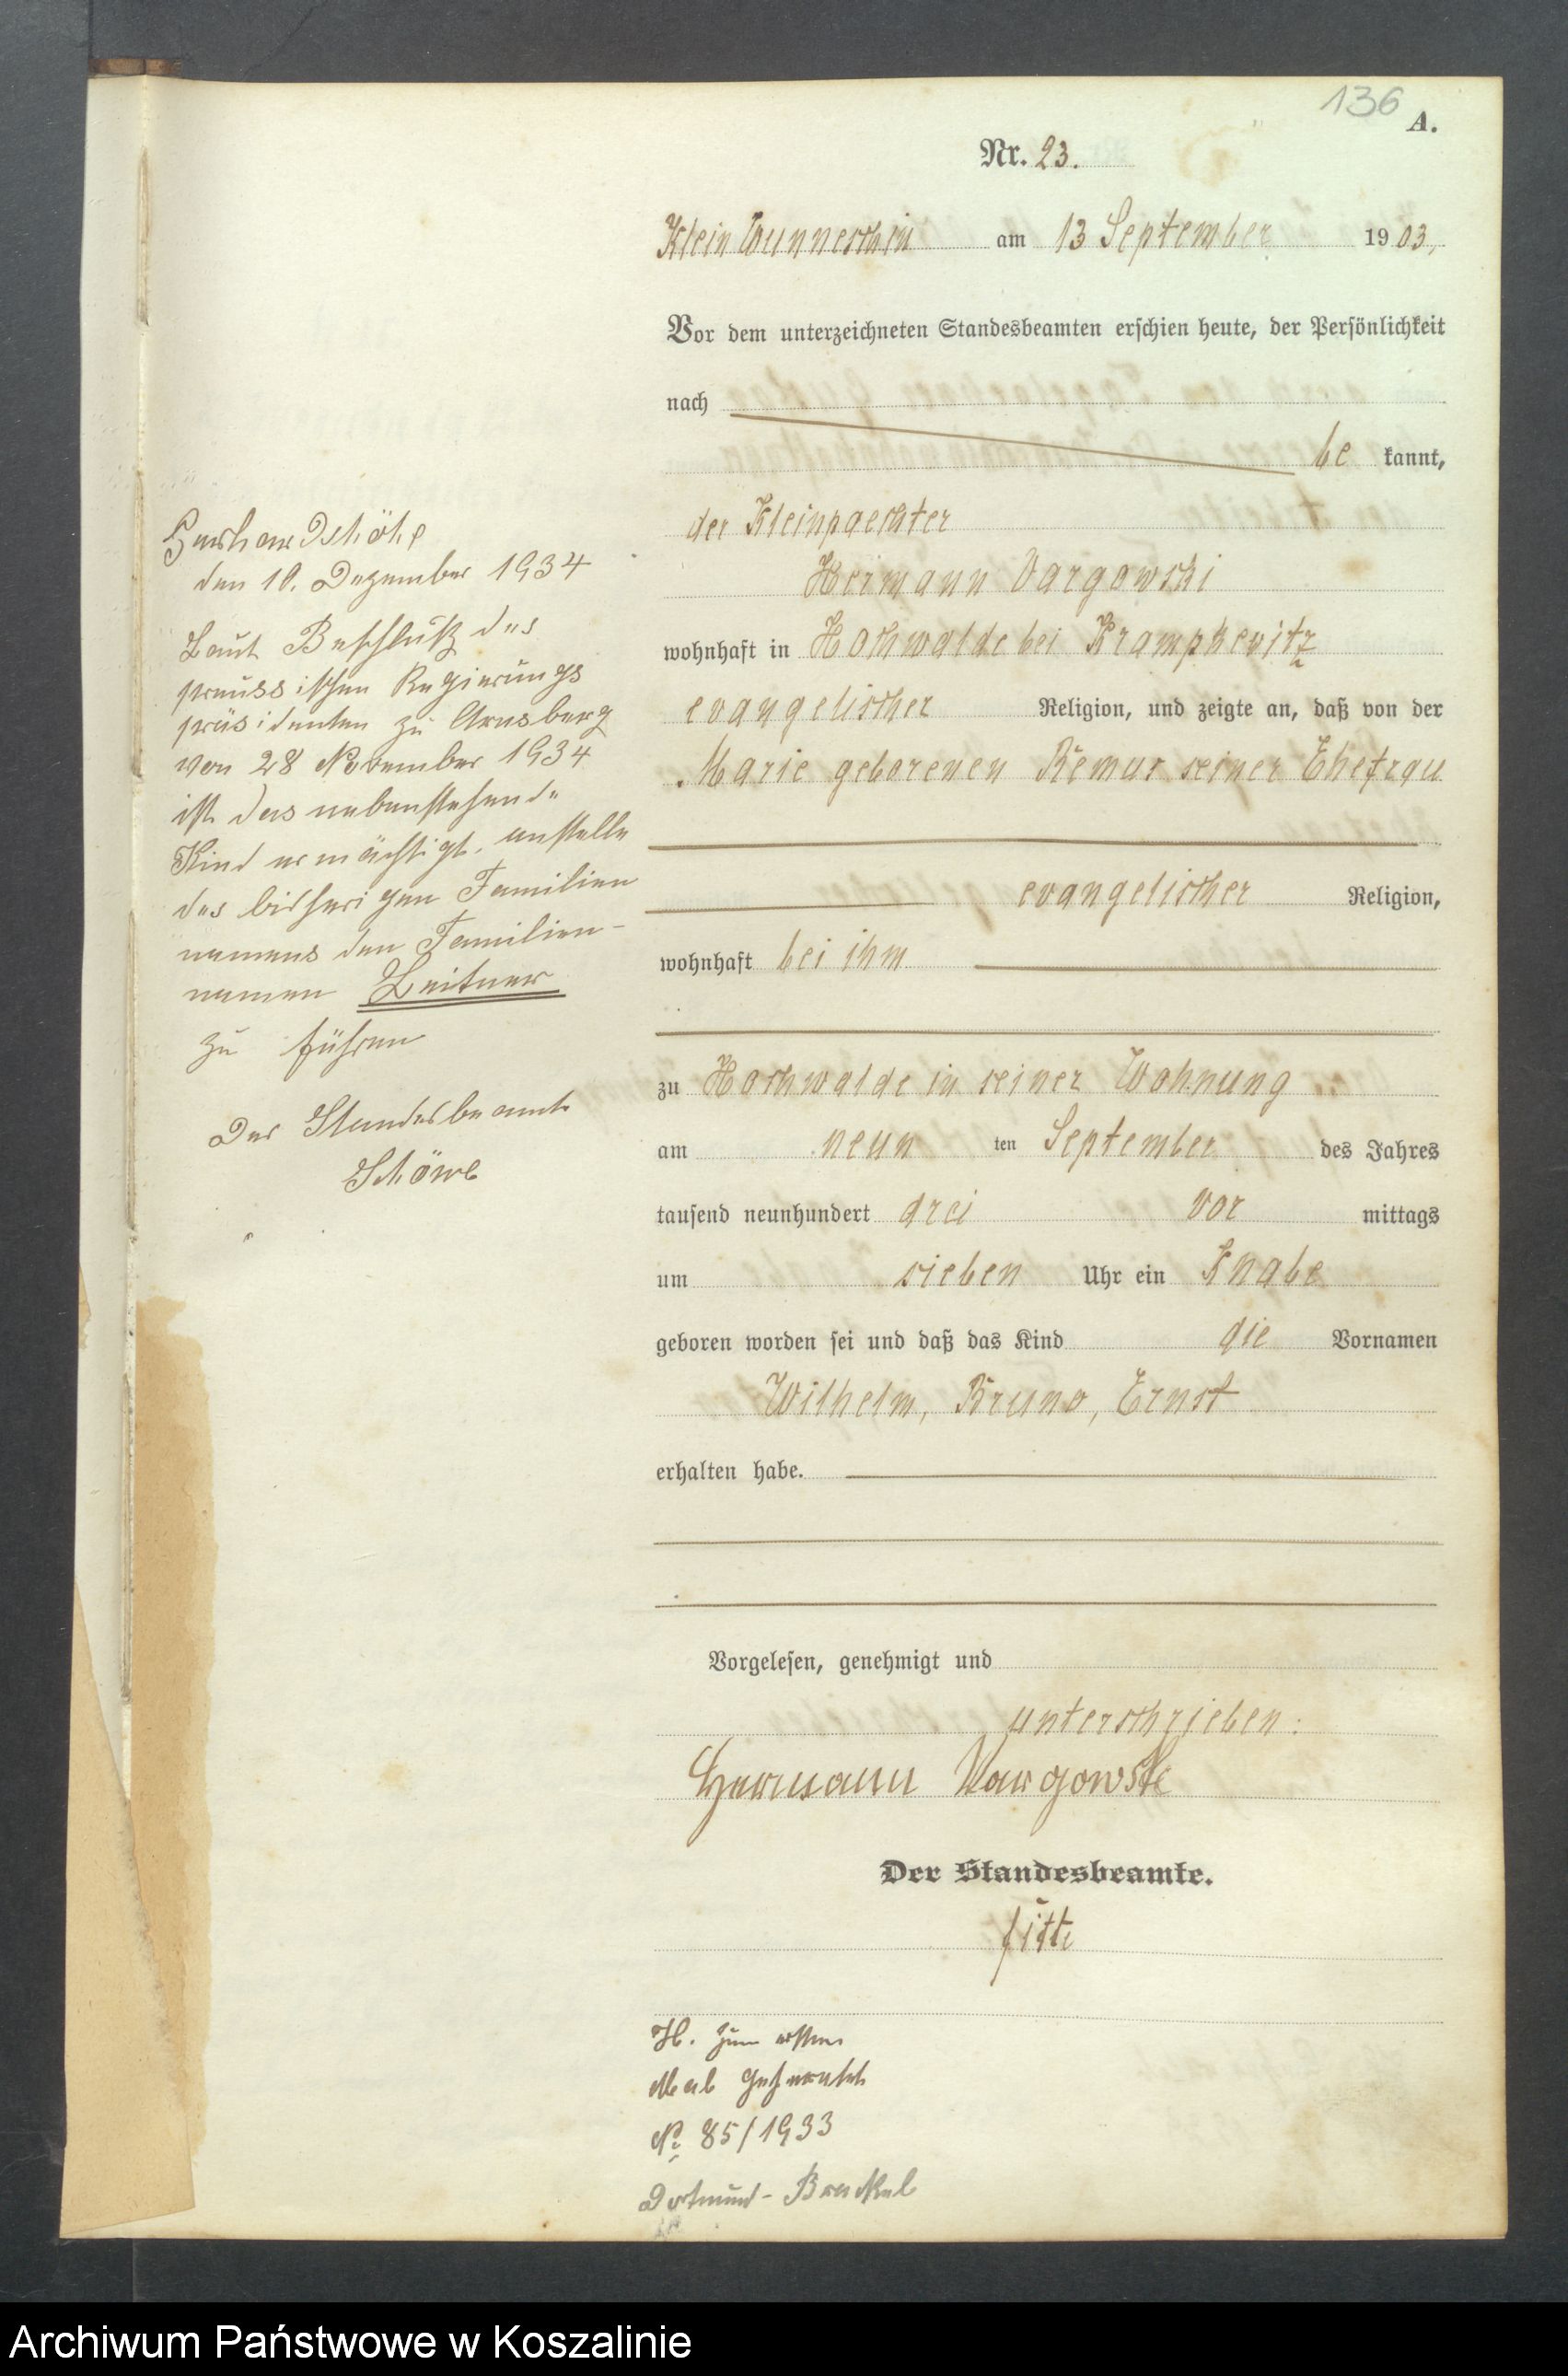 136
A.
Nr. 23.
Klein Wunneschin am 13 September 1903,
Vor dem unterzeichneten Standesbeamten erschien heute, der Persönlichkeit
nach
be kannt,
der Kleinpaechter
Hermann Vargowski
wohnhaft in Hochwalde bei Krampkewitz
evangelischer Religion, und zeigte an, daß von der
Marie geborenen Remus seiner Ehefrau
evangelischer Religion,
wohnhaft bei ihm
zu Hochwalde in seiner Wohnung
am neun ten September des Jahres
tausend neunhundert drei vor mittags
um sieben Uhr ein Knabe
geboren worden sei und daß das Kind die Vornamen
Wilhelm, Bruno, Ernst
erhalten habe.
Vorgelesen, genehmigt und
unterschrieben:
Hermann Vargowski
Der Standesbeamte.
H. zum ersten
Mal geheiratet
№ 85/1933
Dortmund-Brackel
Gerhardshöhe
den 10. Dezember 1934
Laut Beschluß des
preussischen Regierungs
präsidenten zu Arnsberg
von 28 November 1934
ist das nebenstehende
Kind ermächtigt, anstelle
des bisherigen Familien
namens den Familien-
namen Leitner
zu führen
Der Standesbeamte
Schöwe
Archiwum Państwowe w Koszalinie